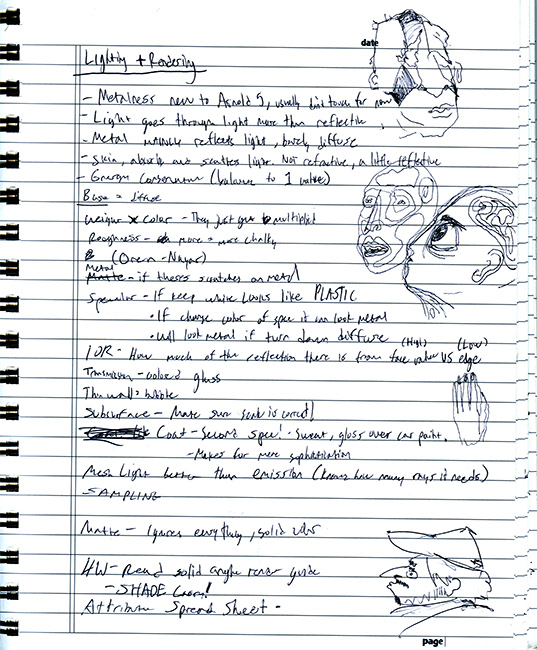 date
Lighting + Rendering
- Metalness new to Arnold 5, usually don't touch for now
- Light goes through light more than reflective
- Metal mainly reflects light, barely diffuse
- Skin, absorbs and scatters light. Not refractive, a little reflective
- Energy conservation (balance to 1 value)
Base = diffuse
weight x color - They just get multiplied
Roughness - more = more chalky
(Oren-Nayar)
Metal - if theres scratches on metal
Specular - If keep white looks like PLASTIC
• If change color of spec it can look metal
• Will look metal if turn down diffuse
IOR - How much of the reflection there is from face value (High) vs edge (Low)
Transmission - colored glass
Thin wall = bubble
Subsurface - Make sure scale is correct!
Coat - Second spec! - Sweat, gloss over car paint.
- Makes for more sophistication
Mesh Light better than emission (knows how many rays it needs)
SAMPLING
Matte - Ignores everything, solid color
HW - Read solid angle render guide
- SHADE
Attribute Spread Sheet -
page